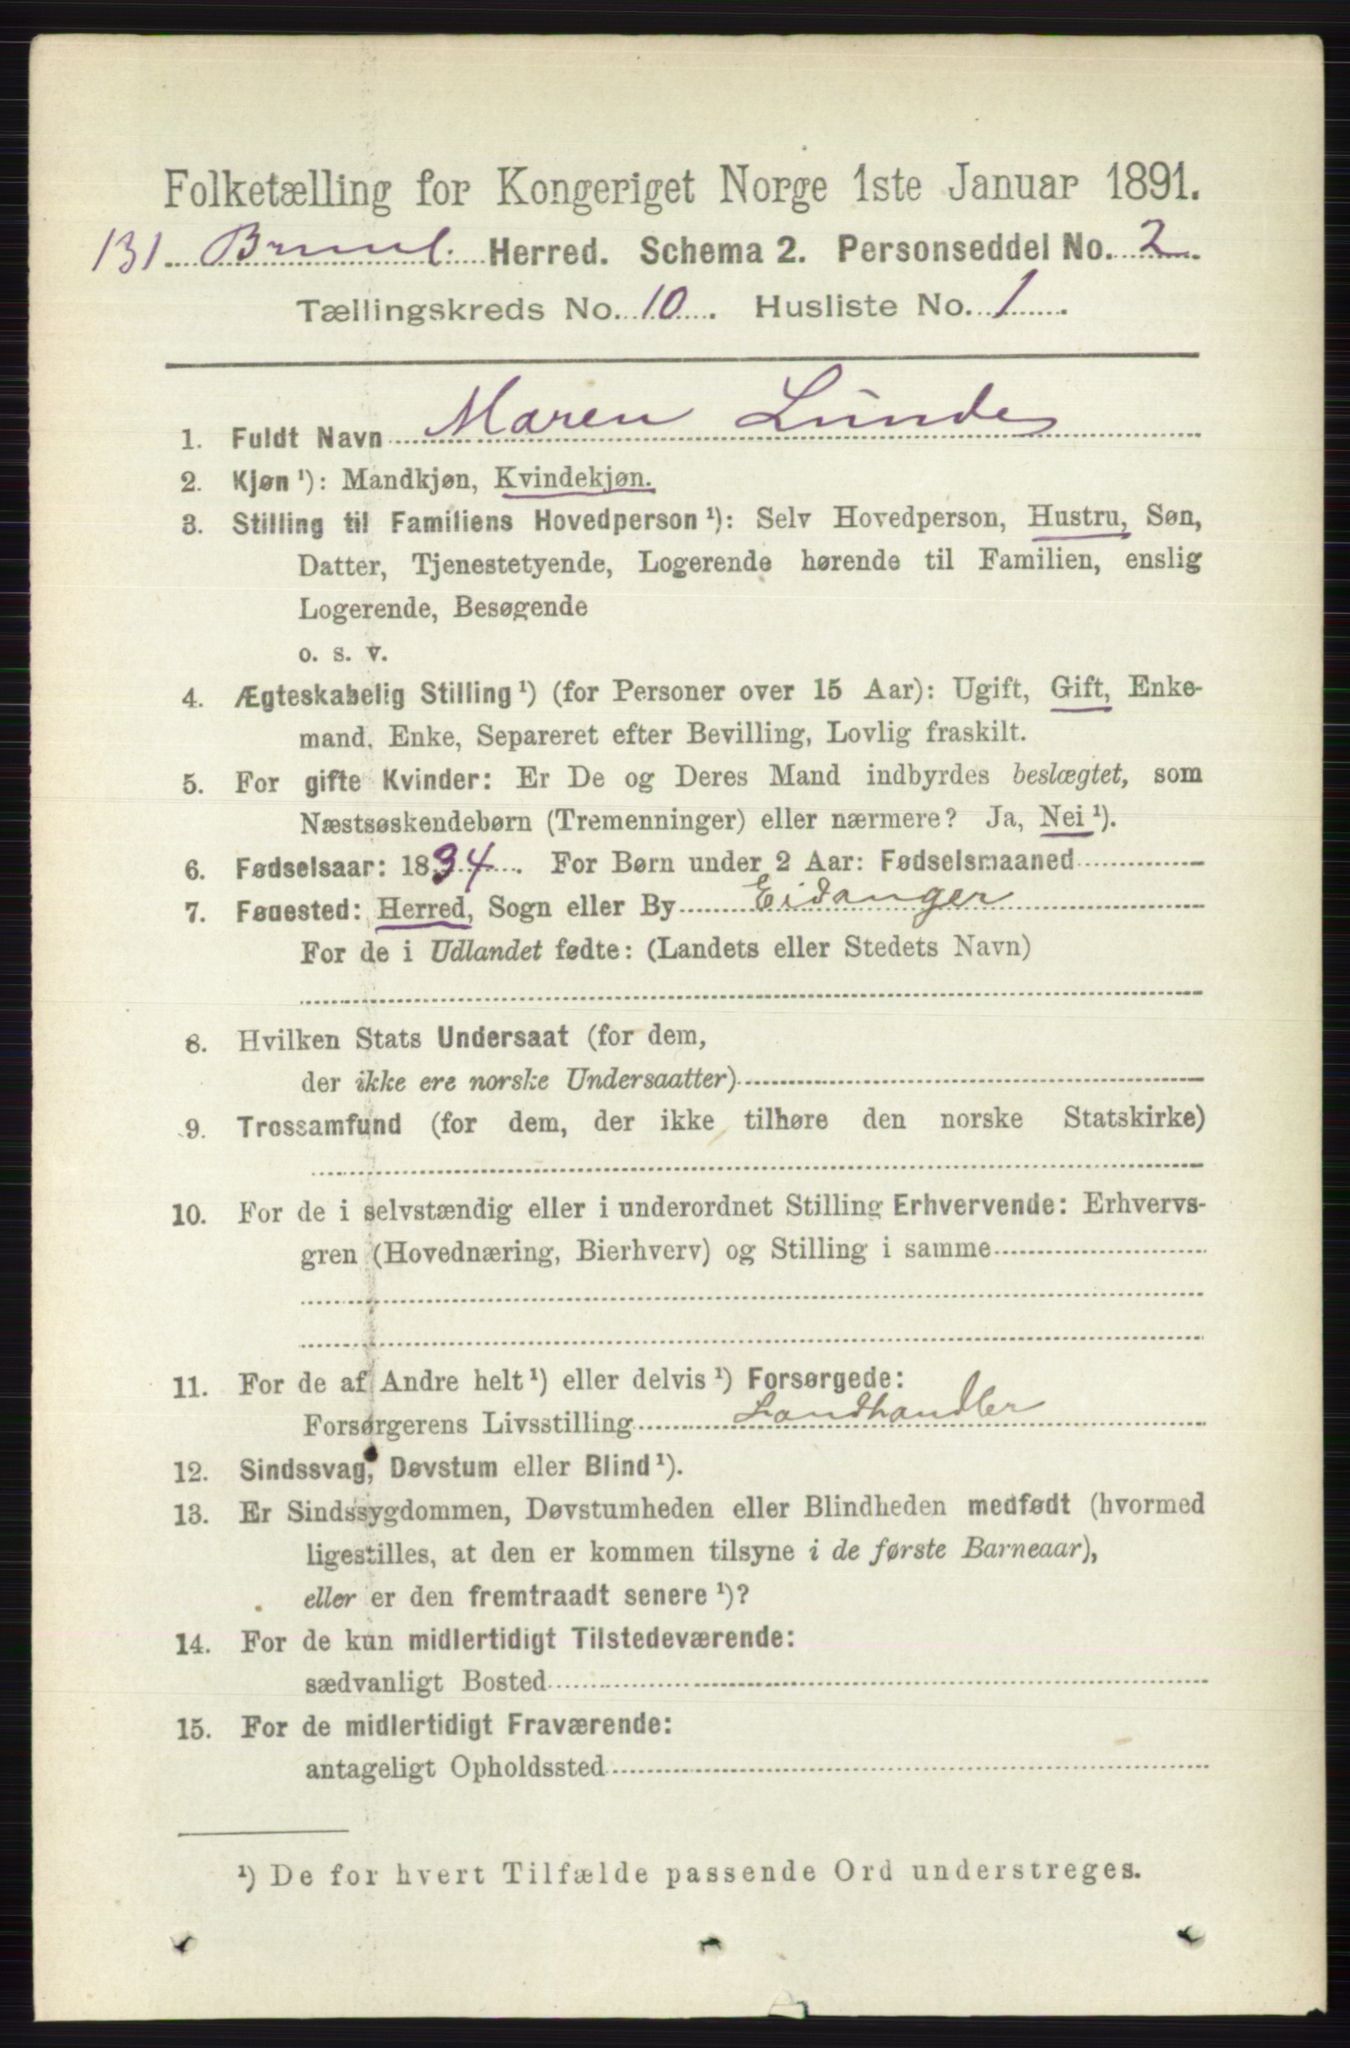 Folketælling for Kongeriget Norge 1ste Januar 1891.
131 Brunl. Herred. Schema 2. Personseddel No. 2
Tællingskreds No. 10. Husliste No. 1
1. Fuldt Navn Maren Lunde
2. Kjøn ¹): Mandkjøn, Kvindekjøn.
3. Stilling til Familiens Hovedperson ¹): Selv Hovedperson, Hustru, Søn,
Datter, Tjenestetyende, Logerende hørende til Familien, enslig
Logerende, Besøgende
o. s. v.
4. Ægteskabelig Stilling ¹) (for Personer over 15 Aar): Ugift, Gift, Enke-
mand, Enke, Separeret efter Bevilling, Lovlig fraskilt.
5. For gifte Kvinder: Er De og Deres Mand indbyrdes beslægtet, som
Næstsøskendebørn (Tremenninger) eller nærmere? Ja, Nei ¹).
6. Fødselsaar: 1834. For Børn under 2 Aar: Fødselsmaaned
7. Fødested: Herred, Sogn eller By Eidanger
For de i Udlandet fødte: (Landets eller Stedets Navn)
8. Hvilken Stats Undersaat (for dem,
der ikke ere norske Undersaatter)
9. Trossamfund (for dem, der ikke tilhøre den norske Statskirke)
10. For de i selvstændig eller i underordnet Stilling Erhvervende: Erhvervs-
gren (Hovednæring, Bierhverv) og Stilling i samme
11. For de af Andre helt ¹) eller delvis ¹) Forsørgede:
Forsørgerens Livsstilling Landhandler
12. Sindssvag, Døvstum eller Blind ¹).
13. Er Sindssygdommen, Døvstumheden eller Blindheden medfødt (hvormed
ligestilles, at den er kommen tilsyne i de første Barneaar),
eller er den fremtraadt senere ¹)?
14. For de kun midlertidigt Tilstedeværende:
sædvanligt Bosted
15. For de midlertidigt Fraværende:
antageligt Opholdssted
¹) De for hvert Tilfælde passende Ord understreges.